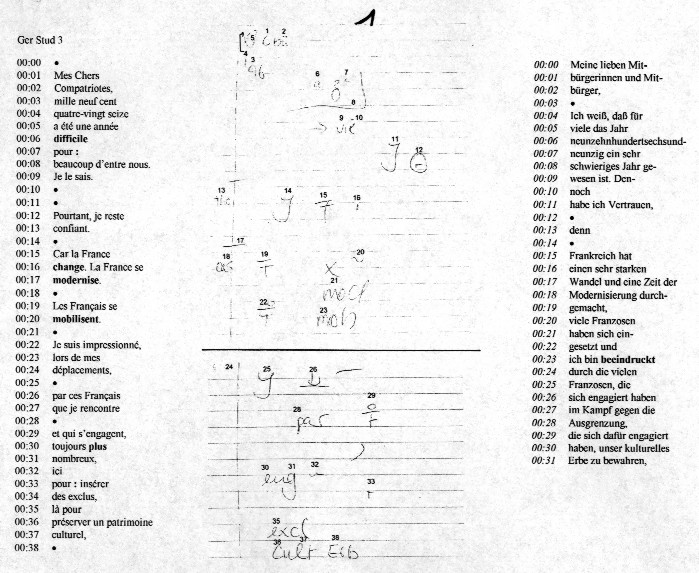 1
Ger Stud 3
00:00 •
00:01 Mes Chers
00:02 Compatriotes,
00:03 mille neuf cent
00:04 quatre-vingt seize
00:05 a été une année
00:06 difficile
00:07 pour :
00:08 beaucoup d'entre nous.
00:09 Je le sais.
00:10 •
00:11 •
00:12 Pourtant, je reste
00:13 confiant.
00:14 •
00:15 Car la France
00:16 change. La France se
00:17 modernise.
00:18 •
00:19 Les Français se
00:20 mobilisent.
00:21 •
00:22 Je suis impressionné,
00:23 lors de mes
00:24 déplacements,
00:25 •
00:26 par ces Français
00:27 que je rencontre
00:28 •
00:29 et qui s'engagent,
00:30 toujours plus
00:31 nombreux,
00:32 ici
00:33 pour : insérer
00:34 des exclus,
00:35 là pour
00:36 préserver un patrimoine
00:37 culturel,
00:38 •
5 1 2
4 3
6 7
8
9 10
→ vie
11
J 12
13 14 15 16
J T
17
18 19 20
T x
21
mod
22 23
T mob
24 25 26
J
29
28
par T
30 31 32
eng 33
35
excl
36 37 38
Cult Erb
00:00 Meine lieben Mit-
00:01 bürgerinnen und Mit-
00:02 bürger,
00:03 •
00:04 Ich weiß, daß für
00:05 viele das Jahr
00:06 neunzehnhundertsechsund-
00:07 neunzig ein sehr
00:08 schwieriges Jahr ge-
00:09 wesen ist. Den-
00:10 noch
00:11 habe ich Vertrauen,
00:12 •
00:13 denn
00:14 •
00:15 Frankreich hat
00:16 einen sehr starken
00:17 Wandel und eine Zeit der
00:18 Modernisierung durch-
00:19 gemacht,
00:20 viele Franzosen
00:21 haben sich ein-
00:22 gesetzt und
00:23 ich bin beeindruckt
00:24 durch die vielen
00:25 Franzosen, die
00:26 sich engagiert haben
00:27 im Kampf gegen die
00:28 Ausgrenzung,
00:29 die sich dafür engagiert
00:30 haben, unser kulturelles
00:31 Erbe zu bewahren,